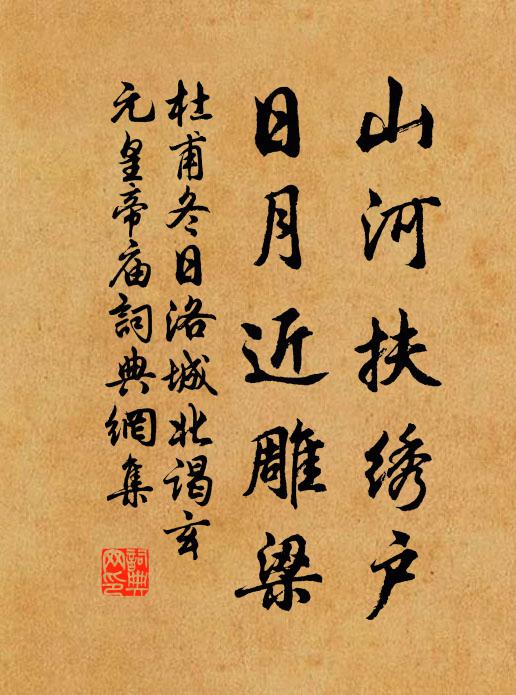 山河扶绣户
日月近雕梁
杜甫冬日洛城北谒玄
元皇帝庙詞典網集
詞典
网印